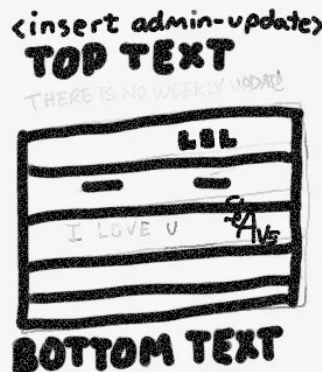 <insert admin-update>
TOP TEXT
THERE IS NO WEEKLY UPDATE
LBL
I LOVE U
BOTTOM TEXT